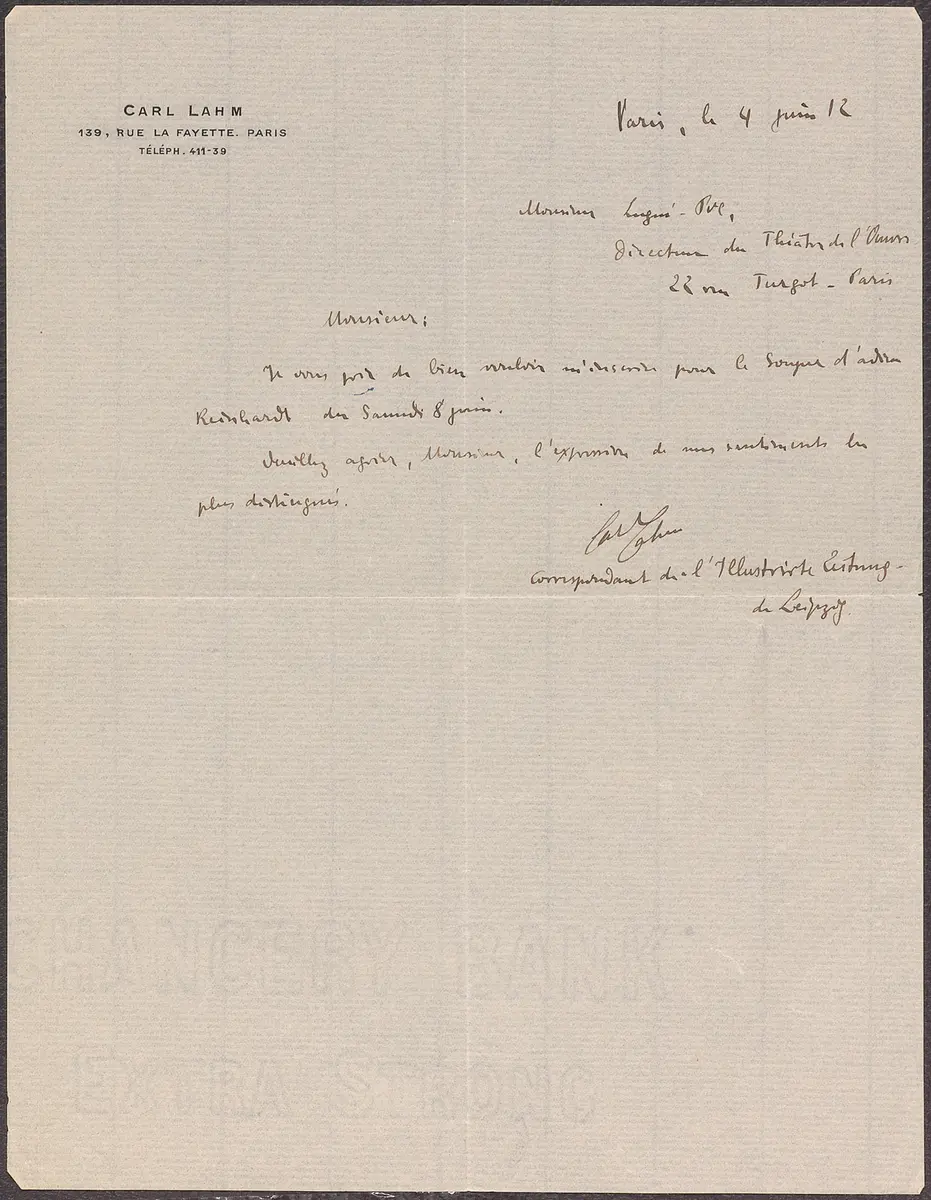 CARL LAHM
139, RUE LA FAYETTE. PARIS
TÉLÉPH. 411-39
Paris, le 4 juin 12
Monsieur Lugné-Poe,
Directeur du Théâtre de l'Œuvre
22 rue Turgot - Paris
Monsieur;
Je vous prie de bien vouloir m'inscrire pour le Souper d'adieu
Reinhardt du Samedi 8 juin.
Veuillez agréer, Monsieur, l'expression de mes sentiments les
plus distingués.
Carl Lahm
correspondant de l'Illustrirte Zeitung -
de Leipzig
CHANCERY BANK
EXTRA STRONG